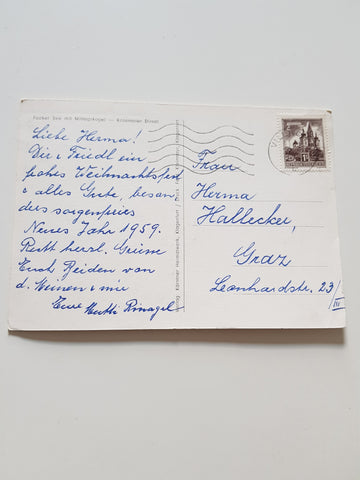 Faaker See mit Mittagskogel — Kärntner
Liebe Herma!
Dir u Friedl ein
frohes Weihnachtsfest
u alles Gute, beson
ders sorgenfreies
Neues Jahr 1959.
Recht herzl. Grüsse
Euch Beiden von
d. Meinen u mir
Eure Mutti
Verlag Kärntner Heimatwerk, Klagenfurt / Druck:
Frau
Herma
Hallecker,
Graz
Leonhardstr. 23/
III